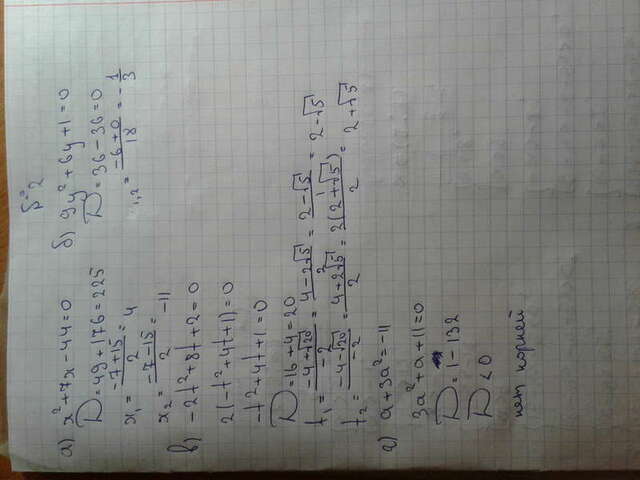 Б-2
а) x²+7x-44=0
D=49+176=225
x₁=(-7+15)/2=4
x₂=(-7-15)/2=-11
б) 9y²+6y+1=0
D=36-36=0
₁,₂=(-6+0)/18=-1/3
в) -2t²+8t+2=0
2(-t²+4t+1)=0
-t²+4t+1=0
D=16+4=20
t₁=(-4+√20)/-2=(4-2√5)/2=(2-√5)/1=2-√5
t₂=(-4-√20)/-2=(4+2√5)/2=2(2+√5)/2=2+√5
г) a+3a²=-11
3a²+a+11=0
D=1-132
D<0
нет корней